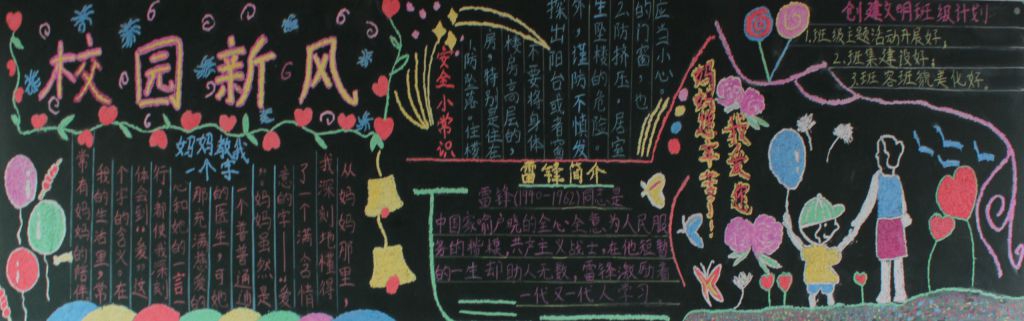 校园新风
妈妈教我
一个字
从妈妈那里，
我深刻地懂得
了一个满含情
意的字——“爱
”。妈妈虽然是
一个普普通通
的医生，可她
那充满热爱的
心和她的一言一
行，都使我深刻
体会到“爱”这
个字的含义。在
我的生活里，常
常有妈妈的陪伴
安全小常识
1.防坠落。住楼
房，特别是住在
楼房高层的，
不要将身体
探出阳台或者窗
外，谨防不慎发
生坠楼的危险。
2.防挤压。居室
的门窗，也
应当小心。
雷锋简介
雷锋(1940-1962)同志是
中国家喻户晓的全心全意为人民服
务的楷模，共产主义战士，在他短暂
的一生却助人无数，雷锋激励着
一代又一代人学习
妈妈您辛苦了！
我爱您
创建文明班级计划
1.班级主题活动开展好。
2.班集建设好；
3.班容班貌美化好。